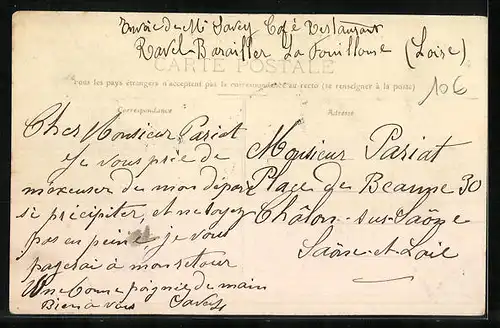 Envoie de Mr Savey Café Restaurant
Ravel-Barailler La Fouillouse (Loire)
CARTE POSTALE
Tous les pays étrangers n'acceptent pas la correspondance au recto (se renseigner à la poste)
106
Correspondance
Cher Monsieur Pariat
Je vous prie de
m'excuser de mon départ
si précipiter, et ne soyez
pas en peine je vous
payerai à mon retour
Une bonne poignée de main
Bien à vous Savey
Adresse
Monsieur Pariat
Place de Beaune 30
Châlon-sus-Saône
Saône-et-Loie